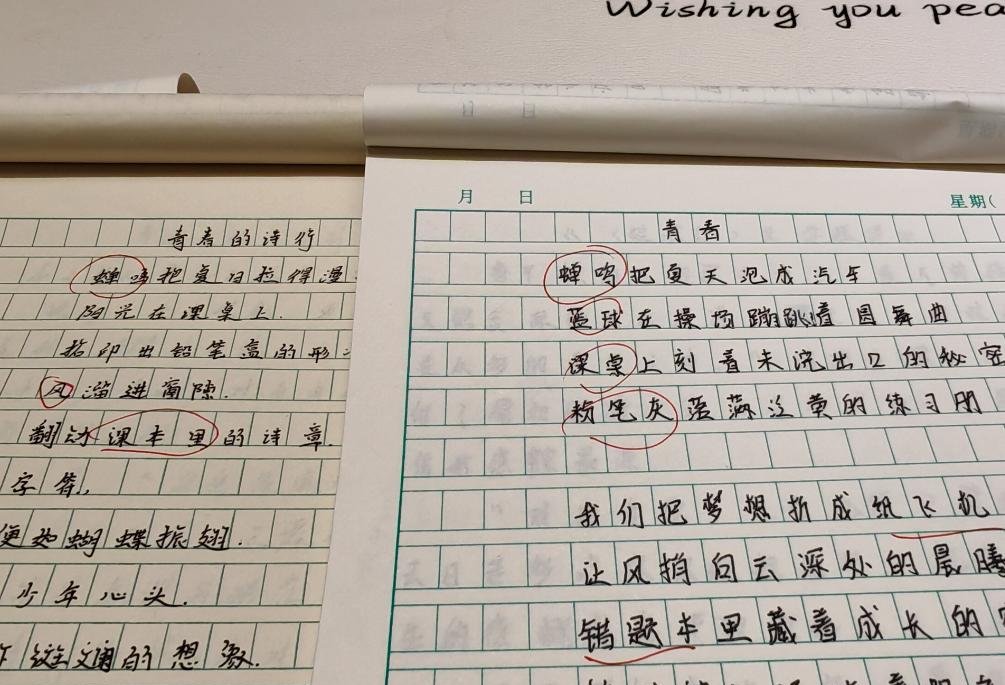 Wishing you pea
月 日
星期(
青春的诗行
蝉鸣把夏日拉得漫
阳光在课桌上.
拓印出铅笔盒的形
风溜进窗隙.
翻动课本里的诗章.
字符,
便如蝴蝶振翅.
少年心头.
的想
青春
蝉鸣把夏天泡成汽车
篮球在操场蹦跳着圆舞曲
课桌上刻着未说出口的秘密
粉笔灰落满泛黄的练习册
我们把梦想折成纸飞机
让风捎向云深处的晨曦
错题本里藏着成长的